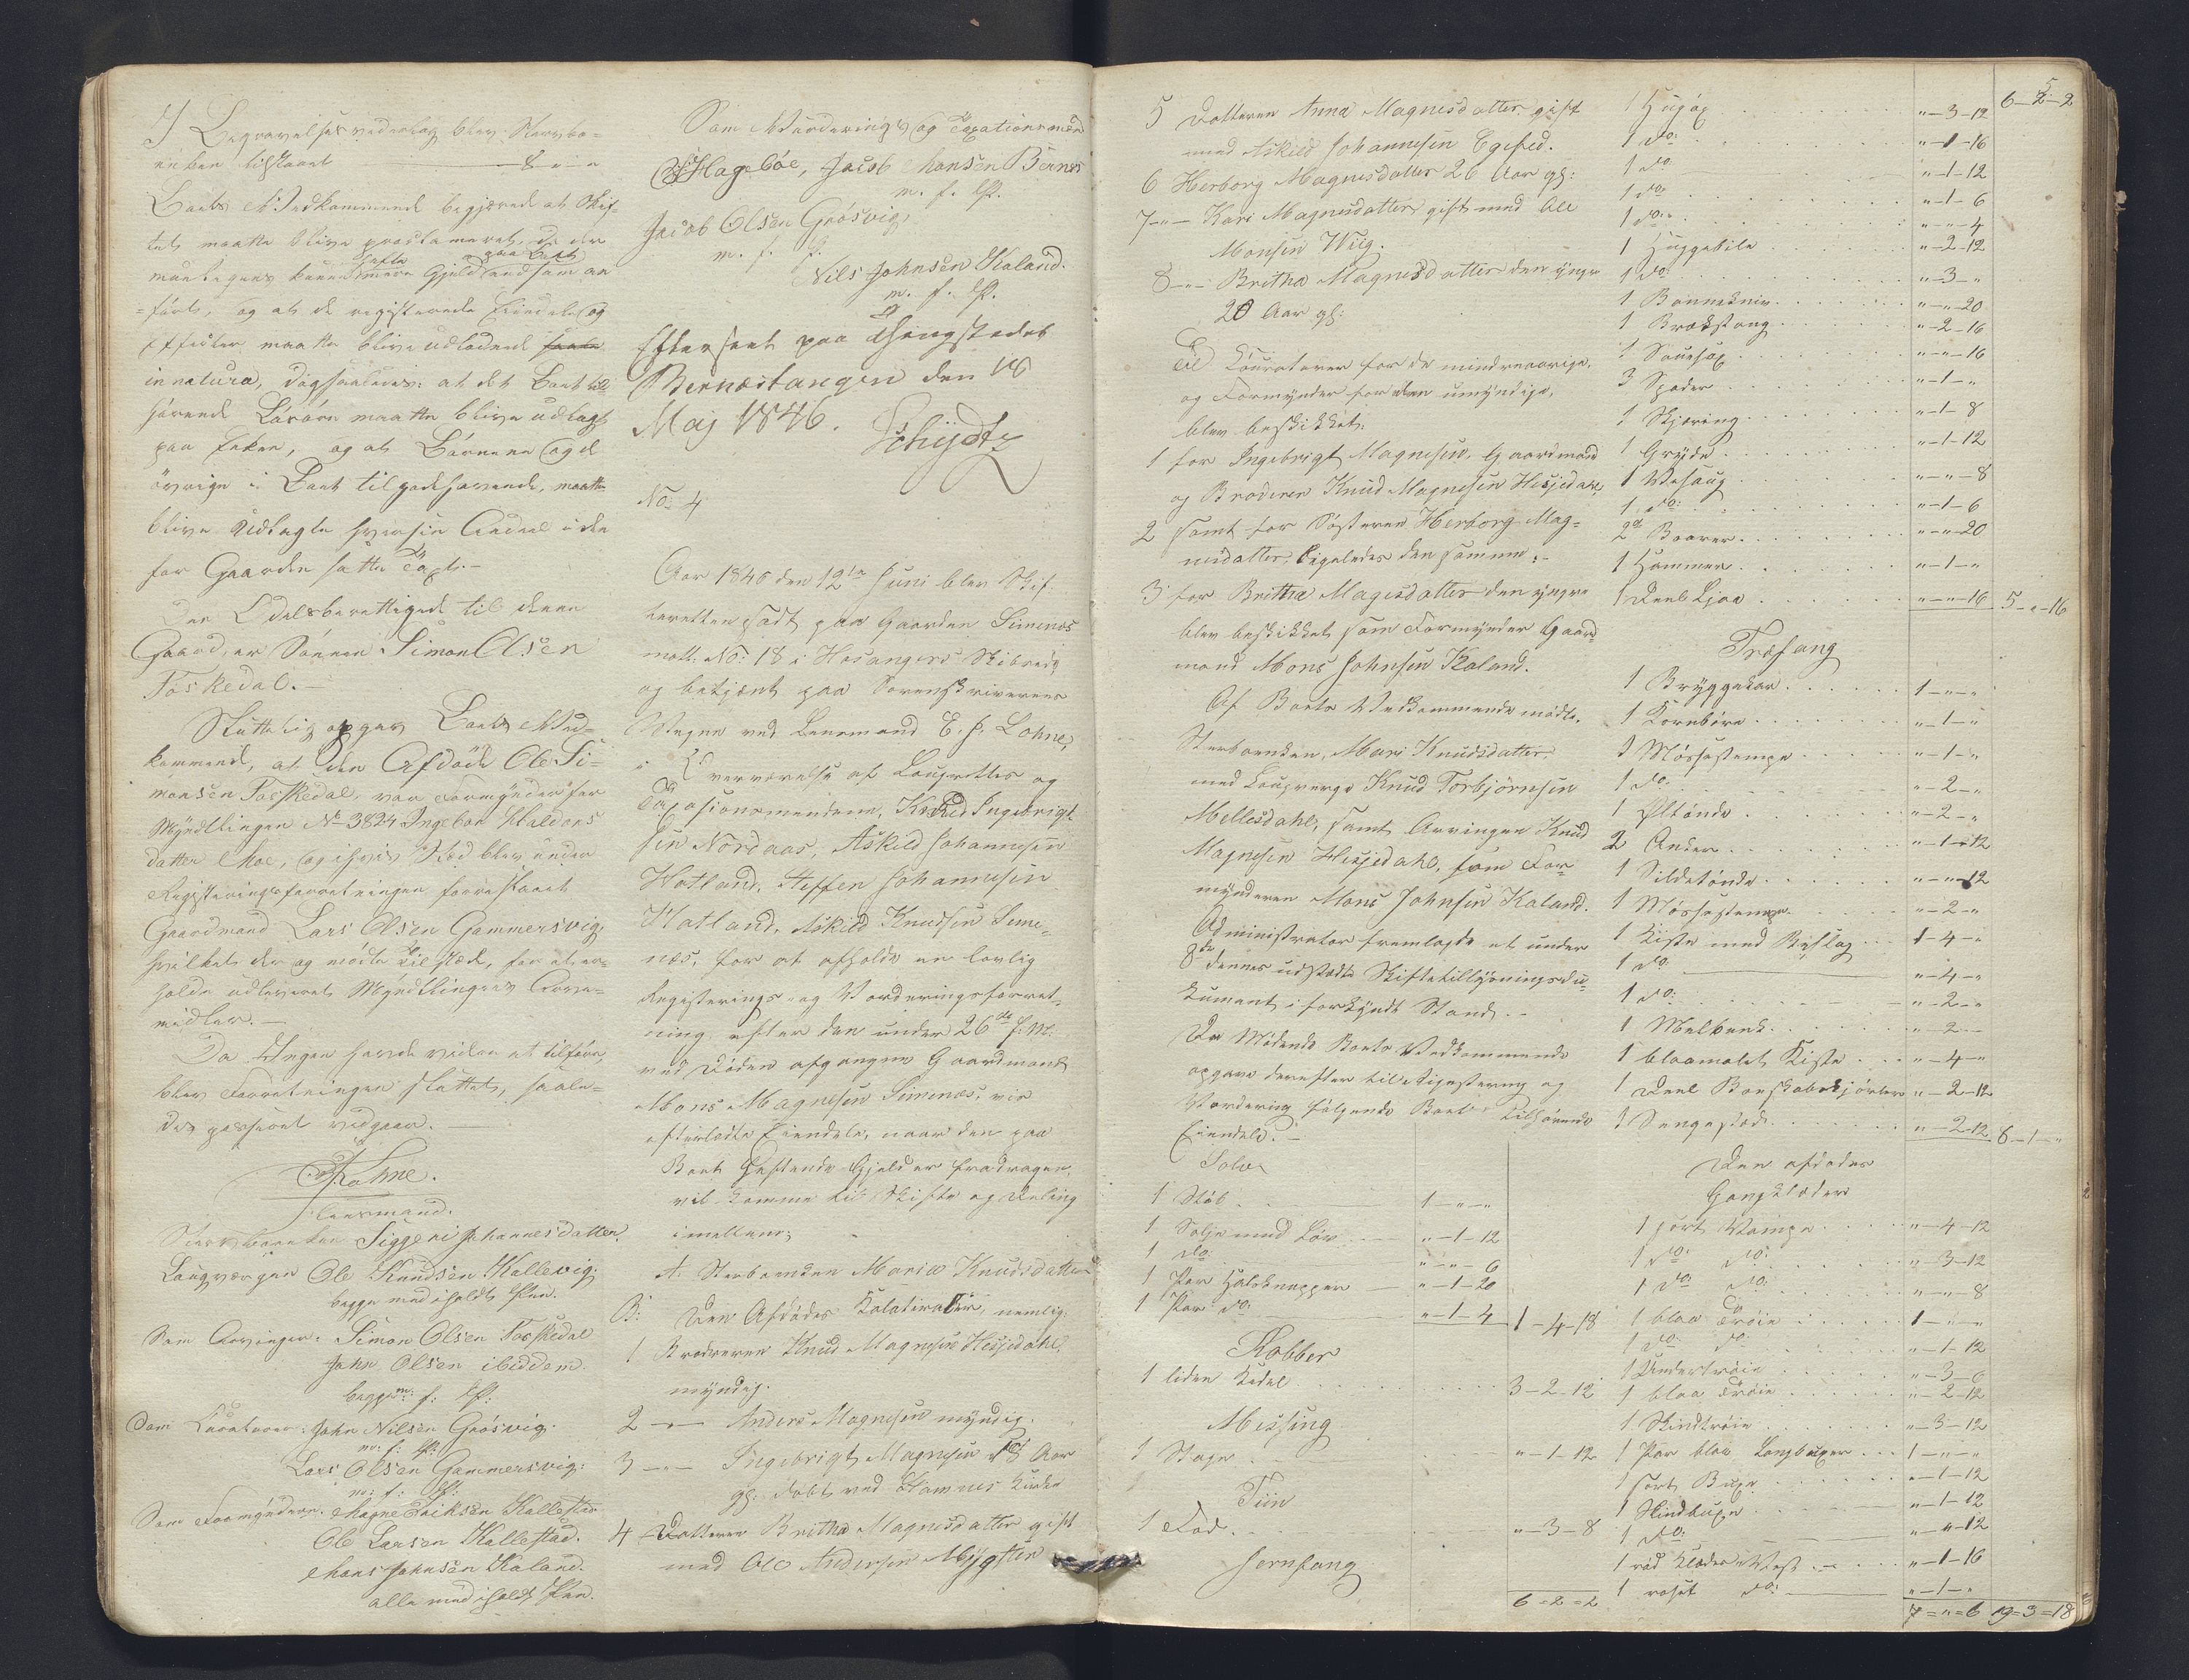 7/ Begravelsesvederlag blev Stervbo-
enken tilstaaet 8 " "
Boets Vedkommende begjærede at Skif-
tet maatte blive proclameret, da der
mueligens kunde hefte mere Gjeld paa Boet end som an
=ført, og at de registerede Eiendele og
Effecter maatte blive udlodede
in natura, dog saaledes: at det Boet til
hørende Løsøre maatte blive udlagt
paa Enken, og at Børnene og de
øvrige i Boet tilgodehavende, maatte
blive Udlagte hver sin Andeel i den
for Gaarden satte Taxt.-
Den Odelsberettigede til denne
Gaard, er Sønnen Simon Olsen
Foskedal.-
Sluttelig opgav Boets Ved-
kommende, at den Afdøde Ole Si-
monsen Fosskedal, var Formynder for
Myndlingen No 3824 Ingebor Haldors
datter Moe, og i hvis Sted blev under
Registeringsforretningen foreslaaet
Gaardmand Lars Olsen Gammersvig,
hvilket der og mødte tilstede, for at er-
holde udleveret Myndlingens Arve-
midler.-
Da Ingen havde videre at tilføre
blev Forretningen sluttet, saale-
des passeret vidgaar.-
Lohne.
Leensmand.
Stervboenken Siggeri Johannesdatter.
Laugværgen Ole Knudsen Kallevig.
begge med iholdt Pen.
Som Arvinger: Simon Olsen Foskedal
John Olsen ibiddem.
begge m: f: P:
Som Curatorer: John Nilsen Grøsvig.
m: f: P:
Lars Olsen Gammersvig:
m: f: P:
Som Formyndere. Magne Eriksen Kallestad
Ole Larsen Kallestad.
Mons Johnsen Kaland.
alle med iholdt Pen.
Som Vurderings og Taxationsmænd
Hagebøe, Jacob Hansen Bernes
m. f. P.
Jacob Olsen Grøsvig,
m. f. P.
Nils Johnsen Kaland.
m. f. P.
Efterseet paa Thingstedet
Bernestangen den 18
Maj 1846. Schydtz
No. 4
Aar 1846 den 12te Juni blev Skif-
teretten sadt paa Gaarden Simenæs
matr. No: 18 i Hosangers Skibrede
og betjent paa Sorenskriverens
Vegne ved Lensmand E. J. Lohne,
i Overværelse af Laugrettes og
Taxasionsmændene, Ingebrigt-
sen Nordaas, Askild Johannesen
Hatland, Steffen Johannesen
Hatland, Askild Knudsen Sime-
næs, for at afholde en lovlig
Registerings- og Vorderingsforret-
ning efter den under 26de f: M:
ved Døden afgangne Gaardmand
Mons Magnesen Simenæs, vis
efterladte Eiendele, naar den paa
Boet heftende Gjeld er fradragen,
vil komme til Skifte og Deling
imellem;
A. Sterboenken Marie Knudsdatter
B: Den Afdødes Kolatiralér, nemlig:
1 Broderen Knud Magnesen Hesjedahl,
myndig.
2 -"- Anders Magnesen myndig.
3 -"- Ingebrigt Magnesen 18 Aar
gl: døbt ved Hamnes Kirke
4 Datteren Britha Magnesdatter gift
med Ole Andersen Mygsten
5 Datteren Anna Magnesdatter gift
med Askild Johannesen Egefed.
6 Herborg Magnesdatter 26 Aar gl:
7 -"- Kari Magnesdatter gift med Ole
Monsen Wiig.
8 -"- Britha Magnesdatter den yngre
20 Aar gl:
Til Couratorer for de mindreaarige,
og Formynder for den umyndige,
blev beskikket:
1 for Ingebrigt Magnesen, Gaardmand
og Broderen Knud Magnesen Hesjedahl,
2 samt for Søsteren Herborg Mag-
nesdatter, ligeledes den samme.-
3 for Britha Magesdatter den yngre
blev beskikket som Formynder Gaard
mand Mons Johnsen Kaland.
Af Boets Vedkommende mødte,
Sterboenken, Mari Knudsdatter,
med Laugverge Knud Torbjørnsen
Mellesdahl, samt Arvingen Knud
Magnesen Hesjedahl, som For-
mynderen Mons Johnsen Kaland.
Administrator fremlagde et under
8de dennes udstædte Skiftetillysningsdo-
kument i forkyndt Stand.-
De Mødende Boets Vedkommende
opgave derefter til Registering og
Vordering følgende Boet tilhørende
Eiendele.-
Sølv
1 Støb 1-"-"
1 Solje med Løv "-1-12
1 do "-"-6
1 Par Halsknapper "-1-20
1 Par do "-1-4 1-4-18
Kobber
1 liden Kedel 3-2-12
Messing
1 Stage "-1-12
Tiin
1 Fad "-3-8
Jernfang
6=2=2
6-2-2
1 Hugøx "-3-12
1 do "-1-16
1 do "-1-12
1 do "-1-6
1 do "-"-4
1 Huggebile "-2-12
1 do "-3-"
1 Bannekniv "-"-20
1 Brækstang "-2-16
1 Sauesax "-"-16
3 Spader "-1-"
1 Skjæring "-1-8
1 Gryde "-1-12
1 Vesaug "-"-8
1 do "-1-6
2de Baarer "-"-20
1 Hammer "-1-"
1 Deel Ljaa "-"-16 5-"-16
Træfang
1 Bryggekar 1-"-"
1 Kornbøre "-1-"
1 Møssestampe "-1-"
1 do "-2-"
1 Øltønde "-2-"
2 Anker "-1-12
1 Sildetønde "-"-12
1 Møssestampe "-2-"
1 Kiste med Beslag 1-4-"
1 do "-4-"
1 do "-2-"
1 Melbenk "-2-
1 blaamalet Kiste "-4-"
1 Deel Boeskabskjørler "-2-12
1 Sengested "-2-12 8-1-"
Den afdødes
Gangklæder
1 sort Vampe "-4-12
1 do do "-3-12
1 do do "-"-8
1 blaa Trøie 1-"-"
1 do do "-1-12
1 Undertrøie "-3-6
1 blaa Trøie "-2-12
1 Skindtrøie "-3-12
1 Par blaa Langbuxer 1-"-"
1 sort Buxe "-1-12
1 Skindbuxe "-1-12
1 do "-"-12
1 rød Klædes Vest "-1-16
1 roset do "-1-"
7="=6 19=3=18